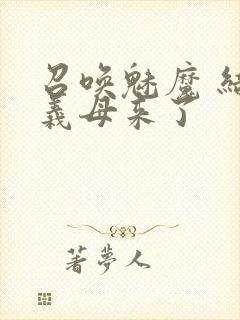 召唤魅魔 结
義母来了
著夢人